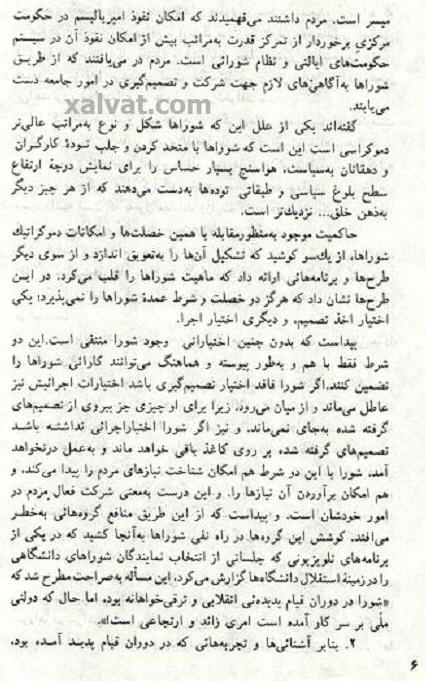 میسر است. مردم داشتند می‌فهمیدند که امکان نفوذ امپریالیسم در حکومت
مرکزی برخوردار از تمرکز قدرت به‌مراتب بیش از امکان نفوذ آن در سیستم
حکومت‌های ایالتی و نظام شورائی است. مردم در می‌یافتند که از طریق
شوراها به‌آگاهی‌های لازم جهت شرکت و تصمیم‌گیری در امور جامعه دست
می‌یابند.
xalvat.com
گفته‌اند یکی از علل این که شوراها شکل و نوع به‌مراتب عالی‌تر
دموکراسی است این است که شوراها با متحد کردن و جلب تودهٔ کارگران
و دهقانان به‌سیاست، هواسنج بسیار حساس را برای نمایش درجهٔ ارتفاع
سطح بلوغ سیاسی و طبقاتی توده‌ها به‌دست می‌دهند که از هر چیز دیگر
به‌ذهن خلق... نزدیك‌تر است.
حاکمیت موجود به‌منظورمقابله با همین خصلت‌ها و امکانات دموکراتیك
شوراها، از یك‌سو کوشید که تشکیل آن‌ها را به‌تعویق اندازد و از سوی دیگر
طرح‌ها و برنامه‌هائی ارائه داد که ماهیت شوراها را قلب می‌کرد. در این
طرح‌ها نشان داد که هرگز دو خصلت و شرط عمدهٔ شوراها را نمی‌پذیرد؛ یکی
اختیار اخذ تصمیم، و دیگری اختیار اجرا.
پیداست که بدون چنین اختیاراتی وجود شورا منتفی است.این دو
شرط فقط با هم و به‌طور پیوسته و هماهنگ می‌توانند کارائی شوراها را
تضمین کنند.اگر شورا فاقد اختیار تصمیم‌گیری باشد اختیارات اجرائیش نیز
عاطل می‌ماند و از میان می‌رود، زیرا برای او چیزی جز پیروی از تصمیم‌های
گرفته شده به‌جای نمی‌ماند. و نیز اگر شورا اختیاراجرائی نداشته باشد
تصمیم‌های گرفته شده بر روی کاغذ باقی خواهد ماند و به‌عمل درنخواهد
آمد. شورا با این دو شرط هم امکان شناخت نیازهای مردم را پیدا می‌کند، و
هم امکان برآوردن آن نیازها را. و این درست به‌معنی شرکت فعال مردم در
امور خودشان است. و پیداست که از این طریق منافع گروه‌هائی به‌خطر
می‌افتد. کوشش این گروه‌ها در راه نفی شوراها به‌آنجا کشید که در یکی از
برنامه‌های تلویزیونی که جلساتی از انتخاب نمایندگان شوراهای دانشگاهی
را در زمینهٔ استقلال دانشگاه‌ها گزارش می‌کرد، این مسأله به‌صراحت مطرح شد که
«شورا در دوران قیام پدیده‌ئی انقلابی و ترقی‌خواهانه بود، اما حال که دولتی
ملّی بر سر کار آمده است امری زائد و ارتجاعی است!».
۲. بنابر آشنائی‌ها و تجربه‌هائی که در دوران قیام پدید آمده بود،
۶